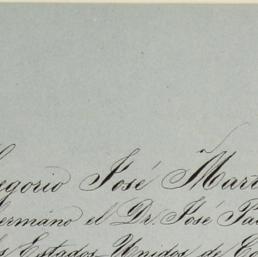 Gregorio José Mart
ermano el Dr. José Pa
s Estados Unidos de Co